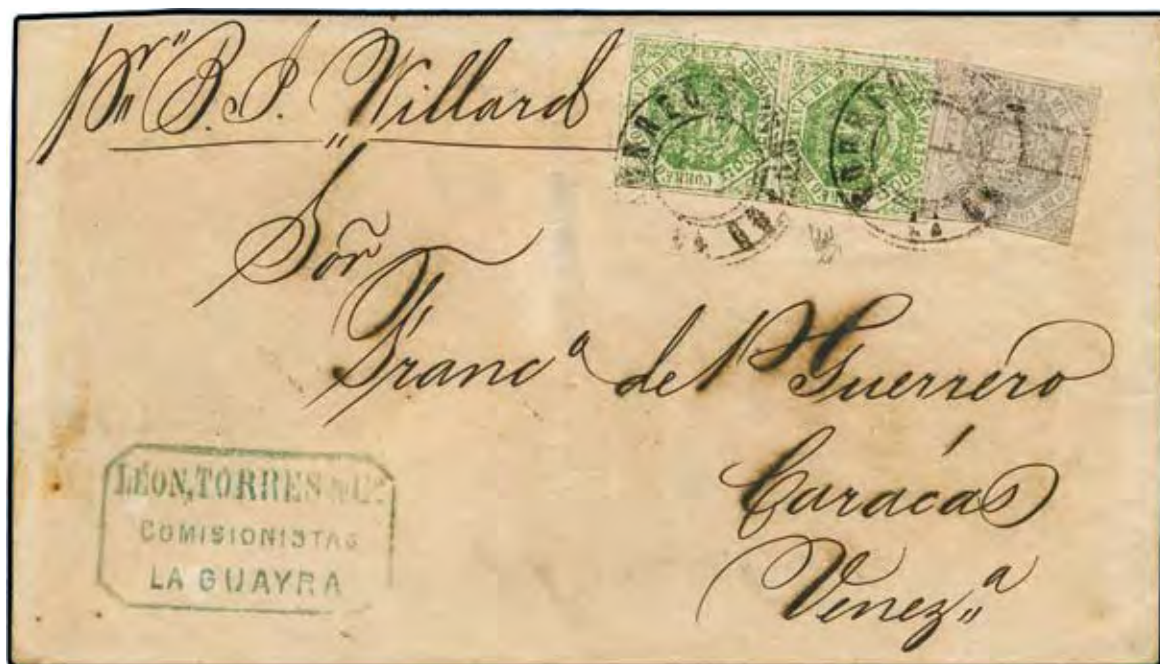 pr " B. I. Willard
Sōr
Francᵒ de P Guerrero
Carácas
Venez„ᵃ
LEON, TORRES & Cª
COMISIONISTAS
LA GUAYRA
CORREO
CORREO